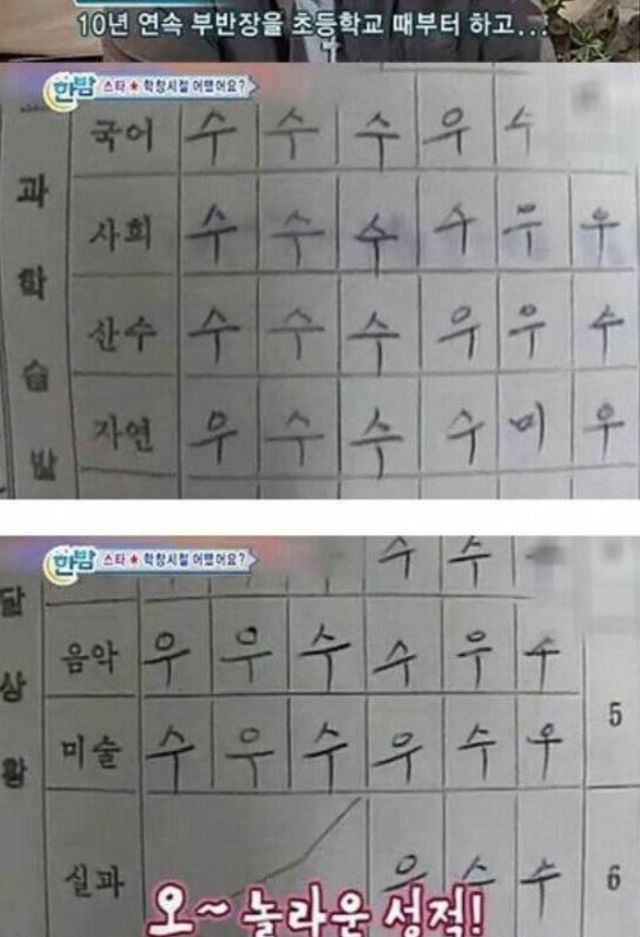 10년 연속 부반장을 초등학교 때부터 하고...
한밤 스타★학창시절 어땠어요?
과학습발
국어 수 수 수 우 수
사회 수 수 수 수 우 우
산수 수 수 수 우 우 수
자연 우 수 수 수 미 우
한밤 스타★학창시절 어땠어요?
달상황
수 수
음악 우 우 수 수 우 수
미술 수 우 수 우 수 우
5
실과 우 수 수
6
오~놀라운 성적!